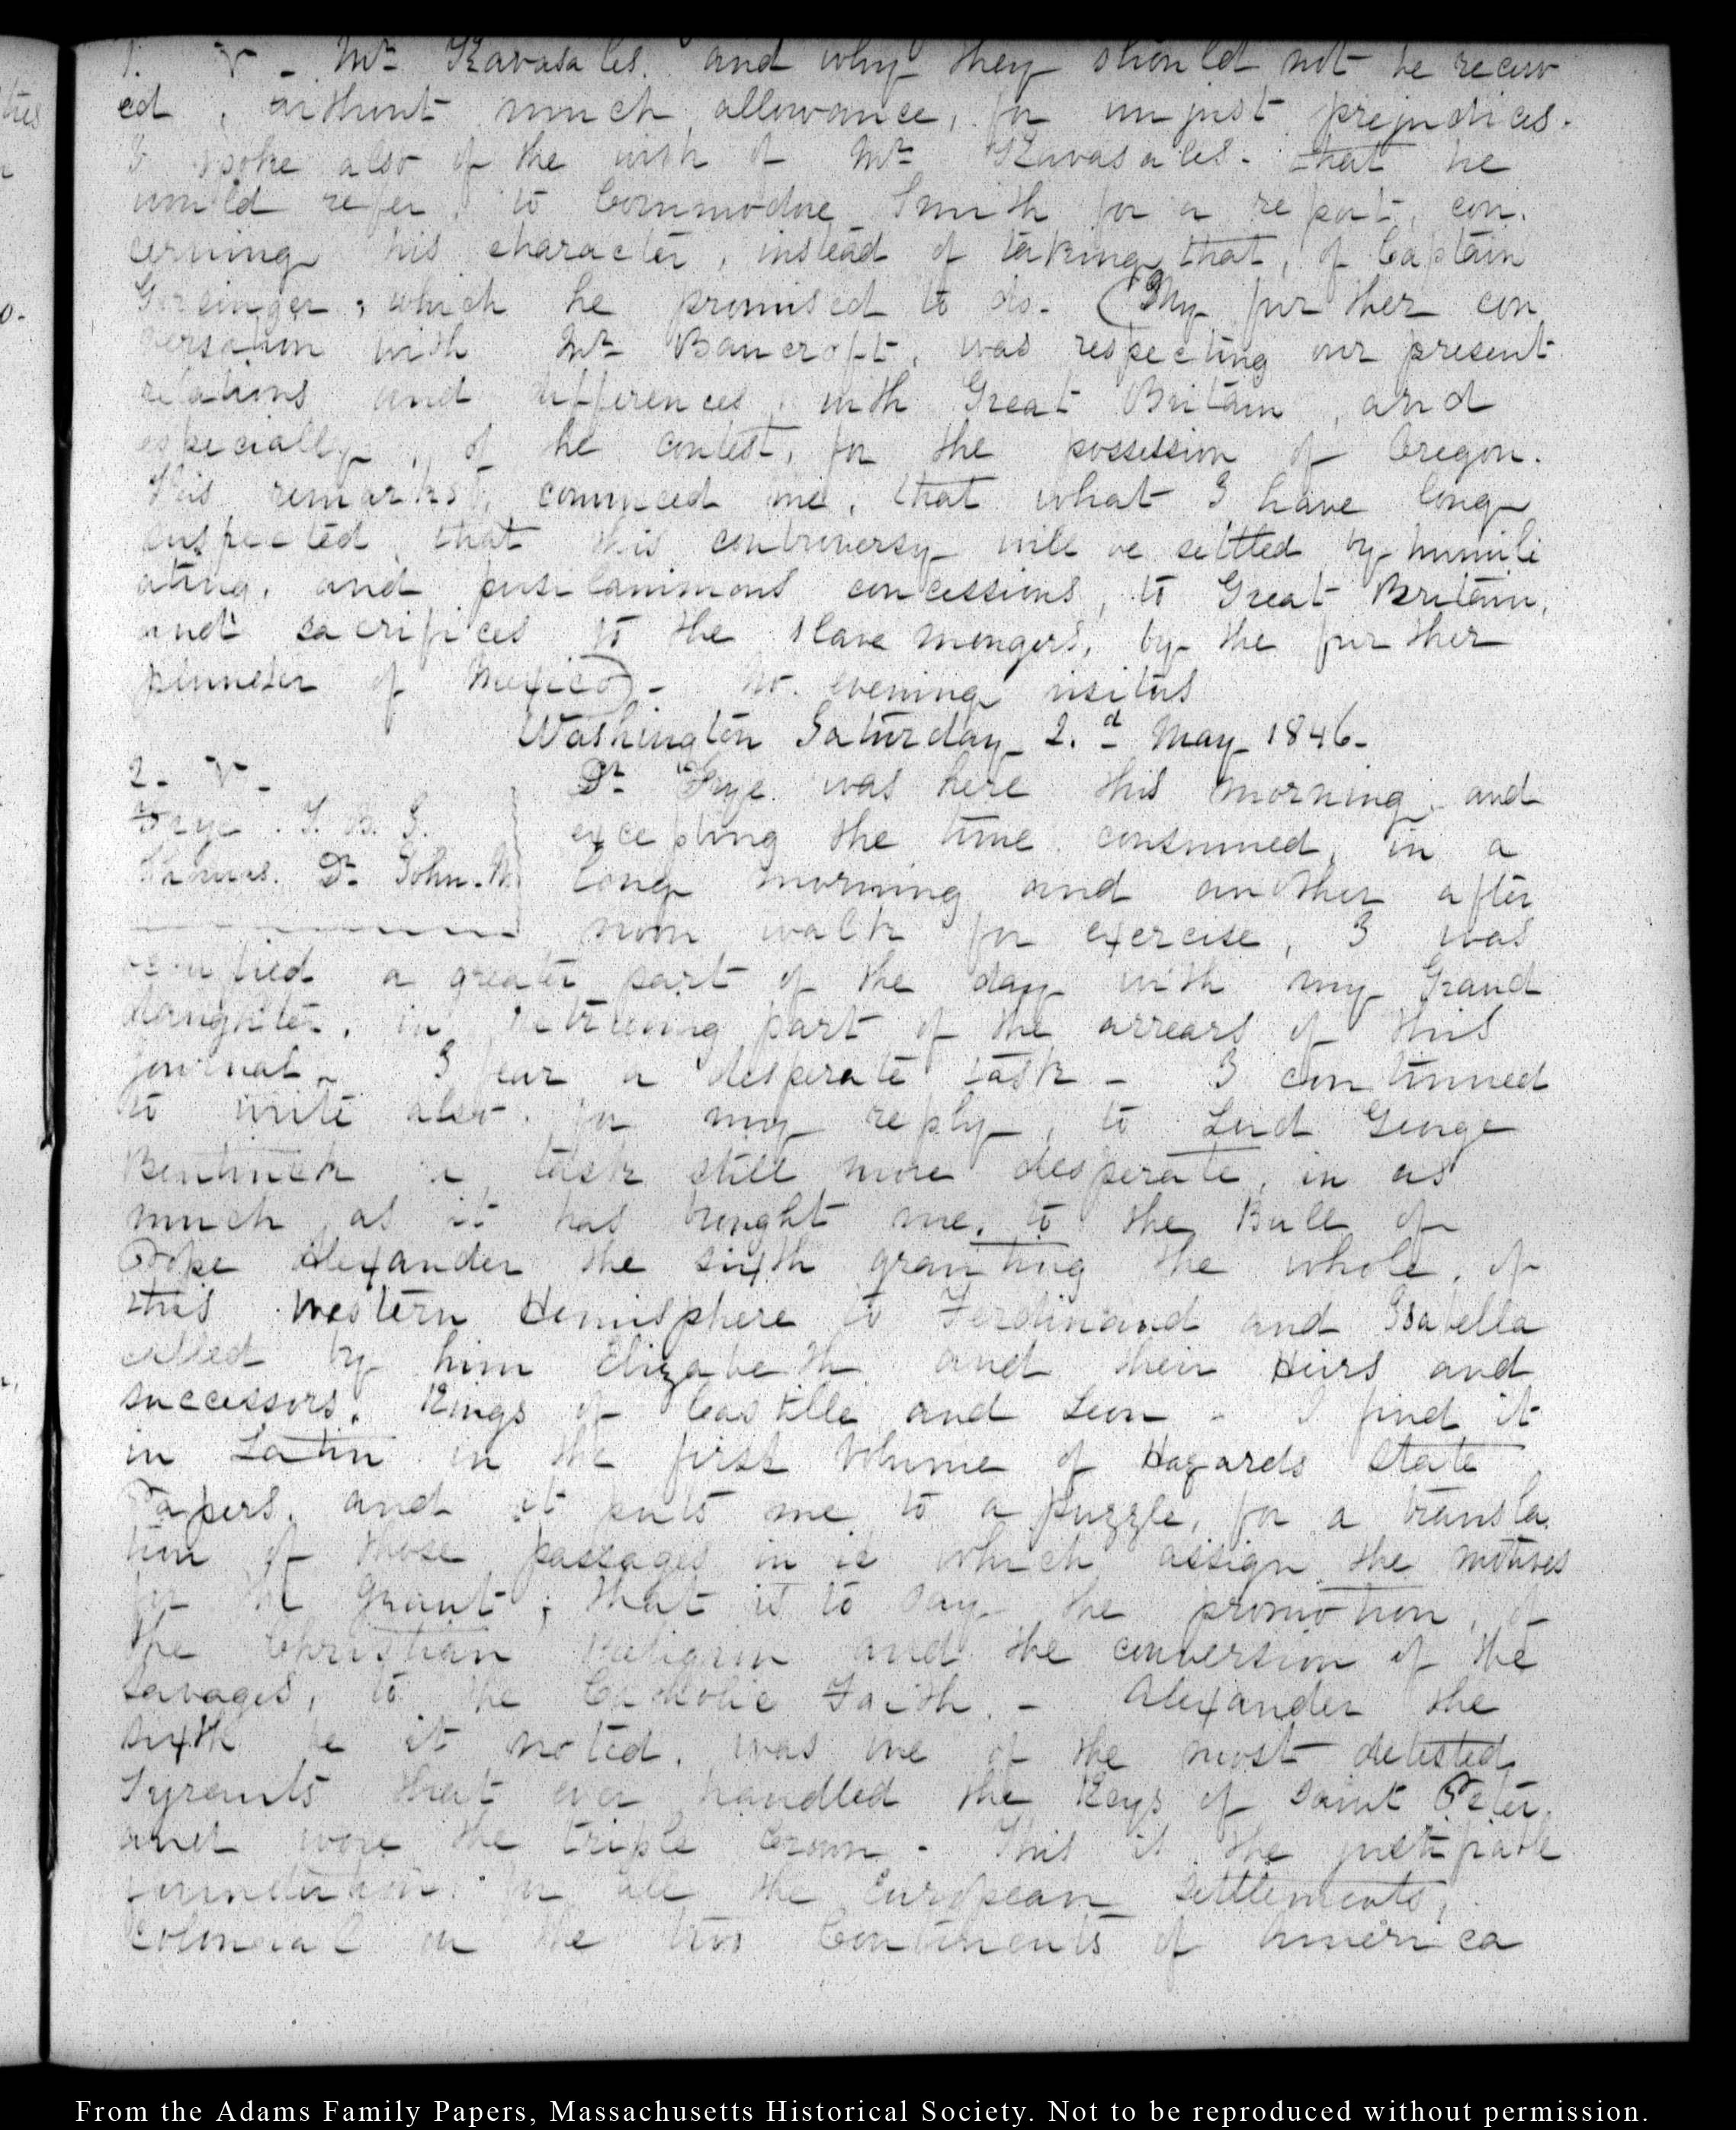 1. V - Mr. Kavasales. and why they should not be receiv
ed, without much allowance, for unjust prejudices.
I spoke also of the wish of Mr. Kavasales. that he
would refer, to Commodore Smith for a report, con.
cerning his character, instead of taking that, of Captain
which he promised to do. (My further con
versation with Mr. Bancroft, was respecting our present
relations and differences, with Great Britain, and
especially, of the contest, for the possession of Oregon.
His remarks, convinced me, that what I have long
suspected, that this controversy will be settled by humili
ating, and pusilanimous concessions, to Great Britain,
and sacrifices to the slave mongers, by the further
plunder of Mexico) - No. evening visitors
Washington Saturday 2.d May 1846.
2. V.
Frye. T. B. J.
Thomas. Dr. John. M
Dr. Frye was here this morning, and
excepting the time consumed, in a
long morning and another after
noon walk for exercise, I was
occupied a greater part of the day with my Grand
daughter, in retrieving part of the arrears of this
journal - I fear a desperate task - I continued
to write also. for my reply, to Lord George
Bentinck a task still more desperate, in as
much, as it has brought me, to the Bull of
Pope Alexander the sixth granting the whole, of
this Western Hemisphere to Ferdinand and Isabella
called by him Elizabeth and their Heirs and
successors, Kings of Castille and Leon - I find it
in Latin in the first Volume of Hazards State
Papers, and it puts me to a puzzle, for a transla.
tion of those passages in it which assign the motives
for the grant; that is to say the promotion, of
the Christian Religion and the conversion of the
savages, to the Catholic Faith. - Alexander the
sixth be it noted, was one of the most detested
Tyrants that ever handled the Keys of Saint Peter,
and wore the triple Crown - This is the justifiable
foundation for all the European settlements,
Colonial on the two Continents of America
From the Adams Family Papers, Massachusetts Historical Society. Not to be reproduced without permission.